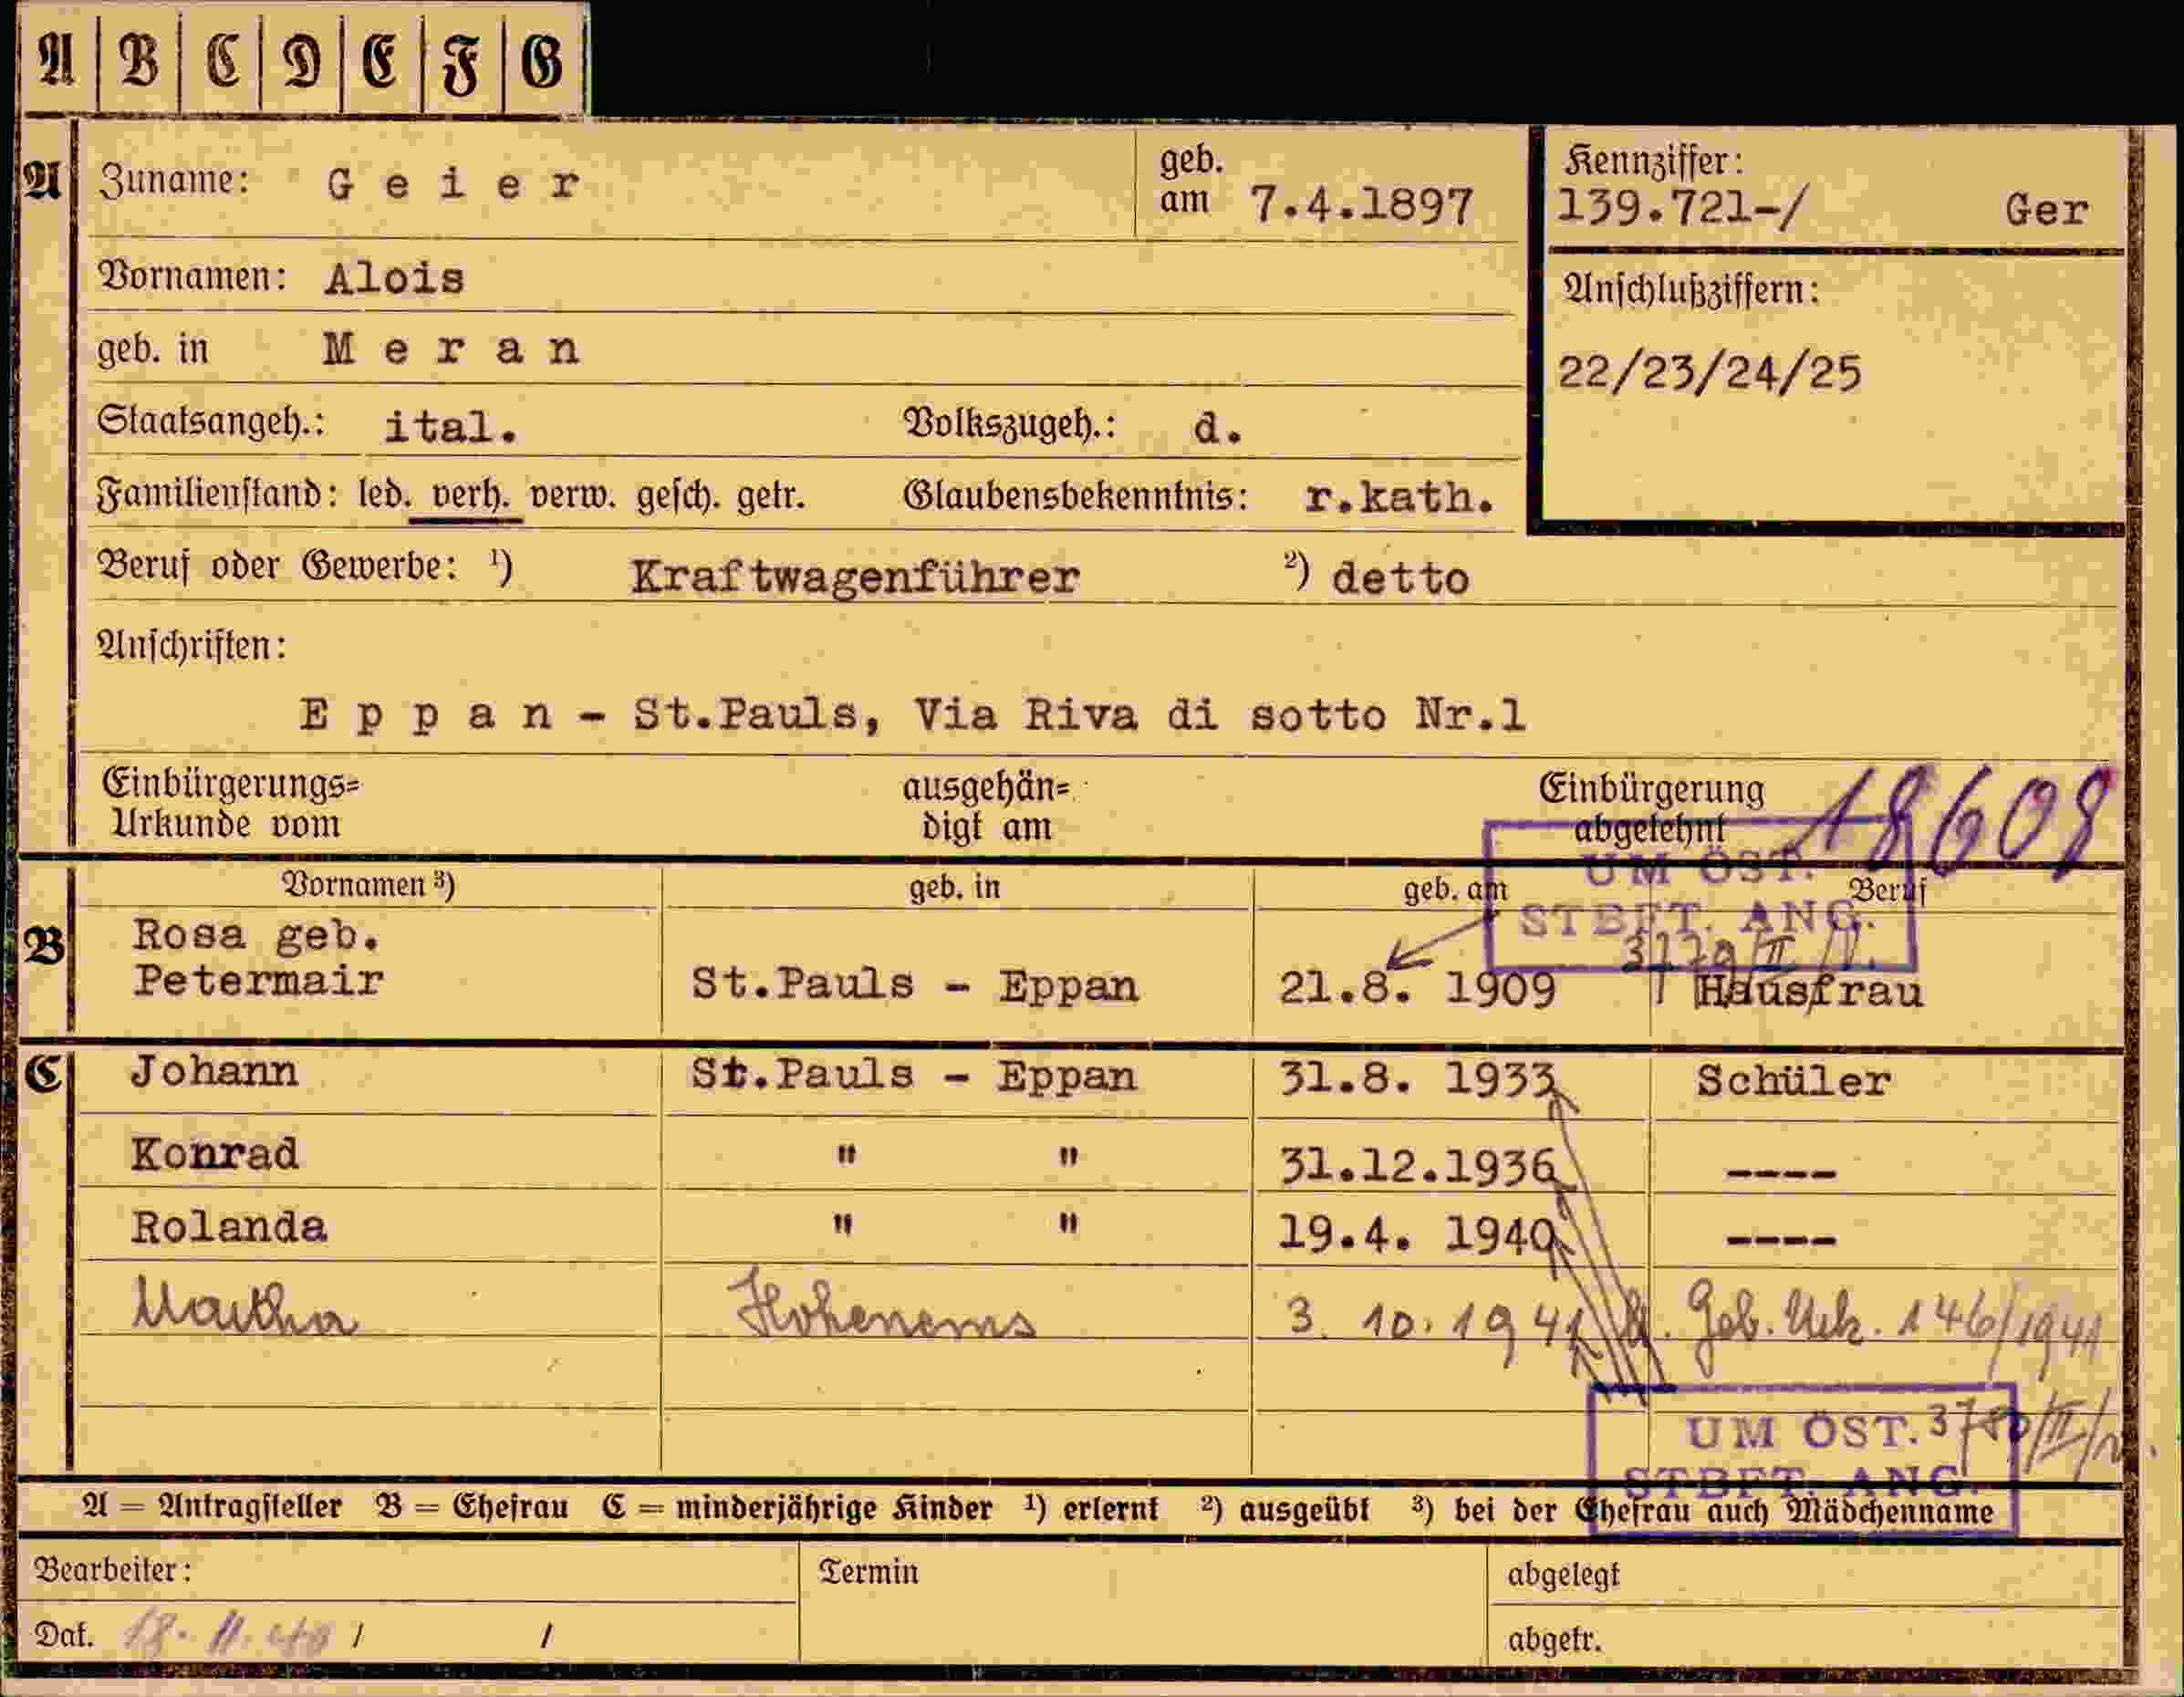 A B C D E F G
A Zuname: Geier geb. am 7.4.1897 Kennziffer: 139.721-/ Ger
Vornamen: Alois Anschlußziffern:
geb. in Meran 22/23/24/25
Staatsangeh.: ital. Volkszugeh.: d.
Familienstand: led. verh. verw. gesch. getr. Glaubensbekenntnis: r.kath.
Beruf oder Gewerbe: ¹) Kraftwagenführer ²) detto
Anschriften:
Eppan - St.Pauls, Via Riva di sotto Nr.1
Einbürgerungs= ausgehän= Einbürgerung 18608
Urkunde vom digt am abgelehnt
UM ÖST.
STBFT. ANG.
Vornamen ³) geb. in geb. am Beruf
B Rosa geb.
Petermair St.Pauls - Eppan 21.8. 1909 Hausfrau
C Johann St.Pauls - Eppan 31.8. 1933 Schüler
Konrad " " 31.12.1936 ----
Rolanda " " 19.4. 1940 ----
Martha Hohenems 3. 10. 1941 Geb. Urk. 146/1941
UM ÖST.
STBFT. ANG.
A = Antragsteller B = Ehefrau C = minderjährige Kinder ¹) erlernt ²) ausgeübt ³) bei der Ehefrau auch Mädchenname
Bearbeiter: Termin abgelegt
Dat. / / abgetr.